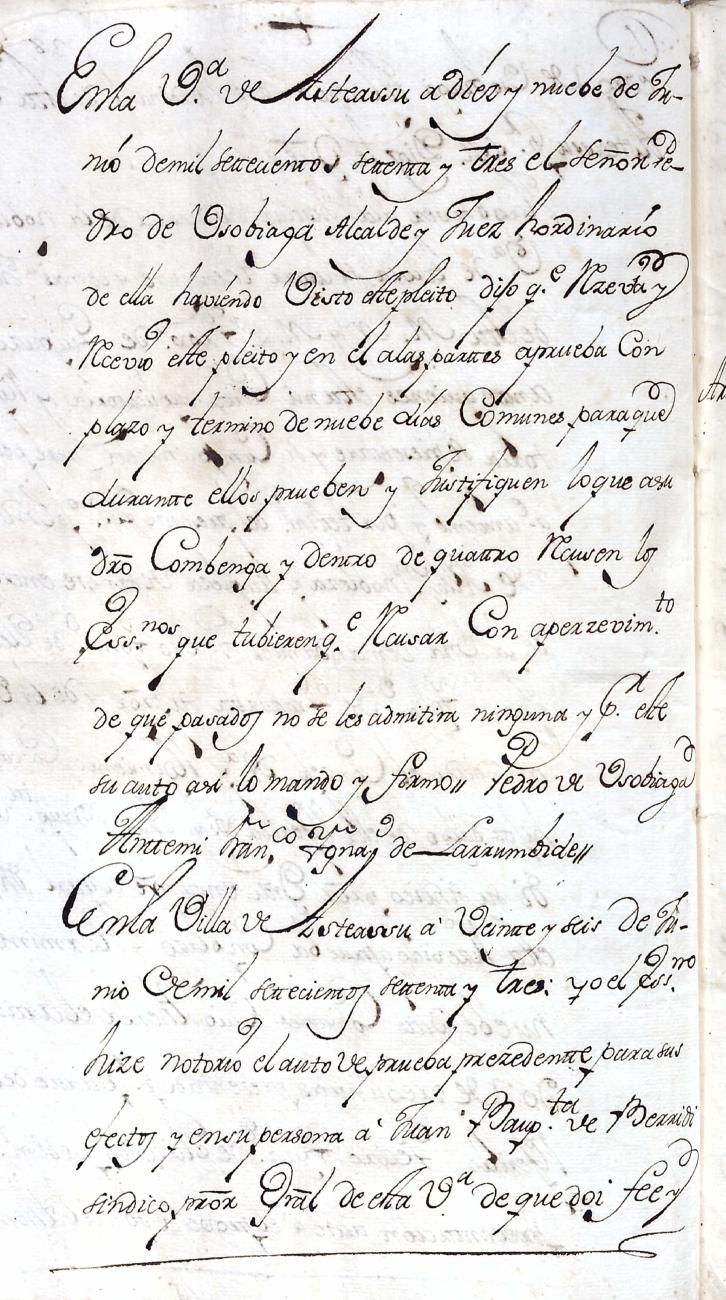 Enla V.ª de Asteassu a diéz y nuebe de Ju-
nió demil settecientos settenta y tres el señor Pe-
dro de Usobiaga Alcalde y Juez hordinario
de ella haviéndo Visto este pleito dijo q.e
Rcevio este pleito y en el alas parttes aprueba Con
plazo y termino de nuebe días Comunes paraque
durantte ellos prueben y Justifiquen loque asu
dro Combenga y dentro de quattro Rcusen los
Ess.nos que tubieren q.e Rcusar Con aperzevim.to
de que pasados no se les admitira ninguna y p.r este
su auto asi lo mando y firmo,, Pedro de Usobiaga
Antemi Fran.co Ygna.o de Larrumbide,,
Enla Villa de Asteassu a Veinte y seis de Ju-
nio Demil settecientos settenta y tres: yo el Ess.no
hize notorio el auto de prueba prezedentte para sus
efectos y ensu persona a Juan Baup.ta de Berridi
sindico, pror Gral de esta V.ª de que doi fee y